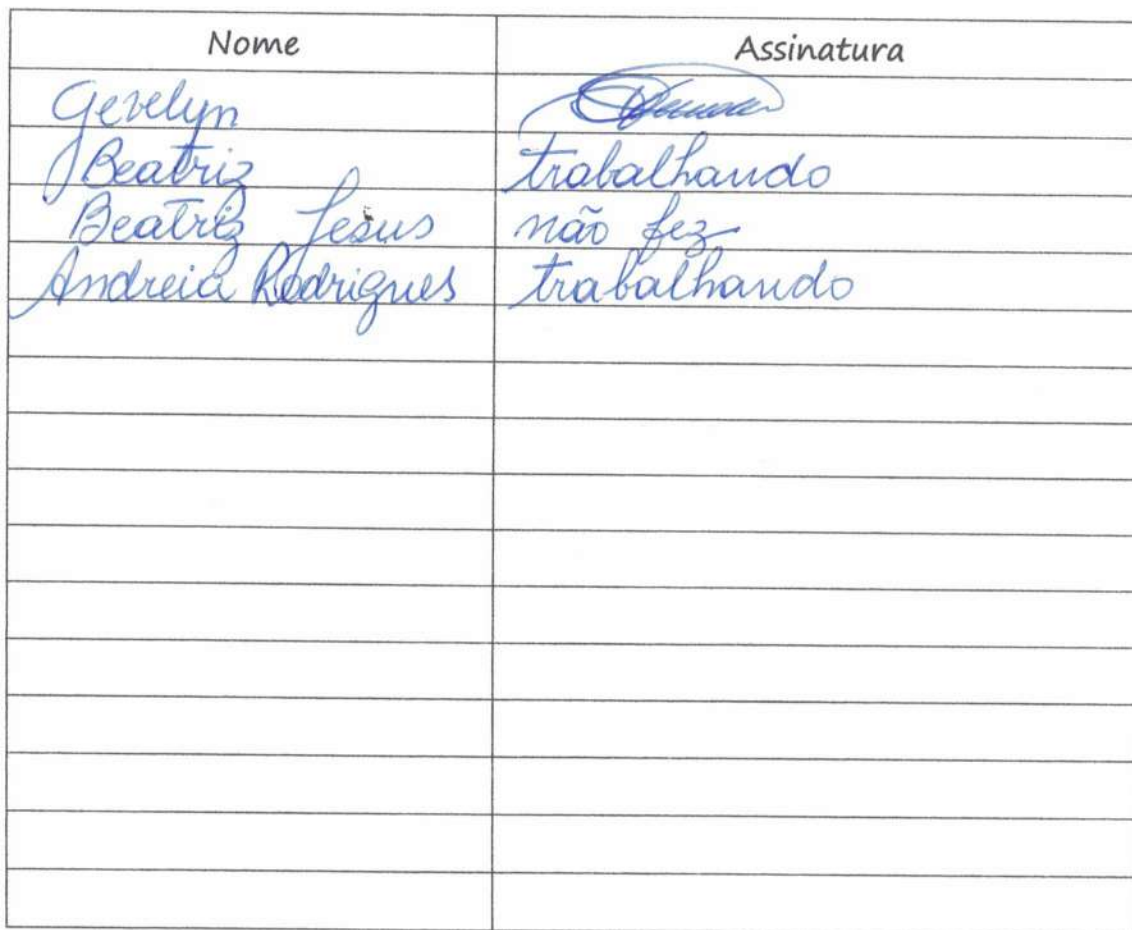 Nome Assinatura
Gevelyn
Beatriz trabalhando
Beatriz Jesus não fez
Andreia Rodrigues trabalhando